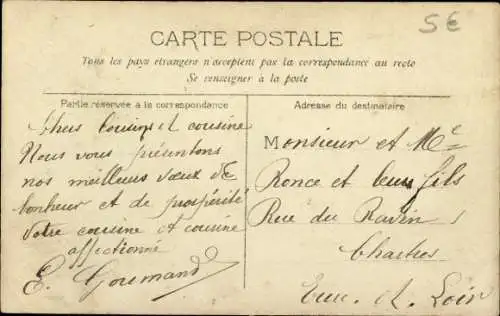 5€
CARTE POSTALE
Tous les pays étrangers n'acceptent pas la correspondance au recto
Se renseigner à la poste
Partie réservée à la correspondance
Chers Cousins et cousine
Nous vous présentons
nos meilleurs vœux de
bonheur et de prospérité
Votre cousine et cousine
affectionné
E. Gourmand
Adresse du destinataire
Monsieur et Me
Ronce et leur fils
Rue du Ravin
Chartres
Eure et Loir